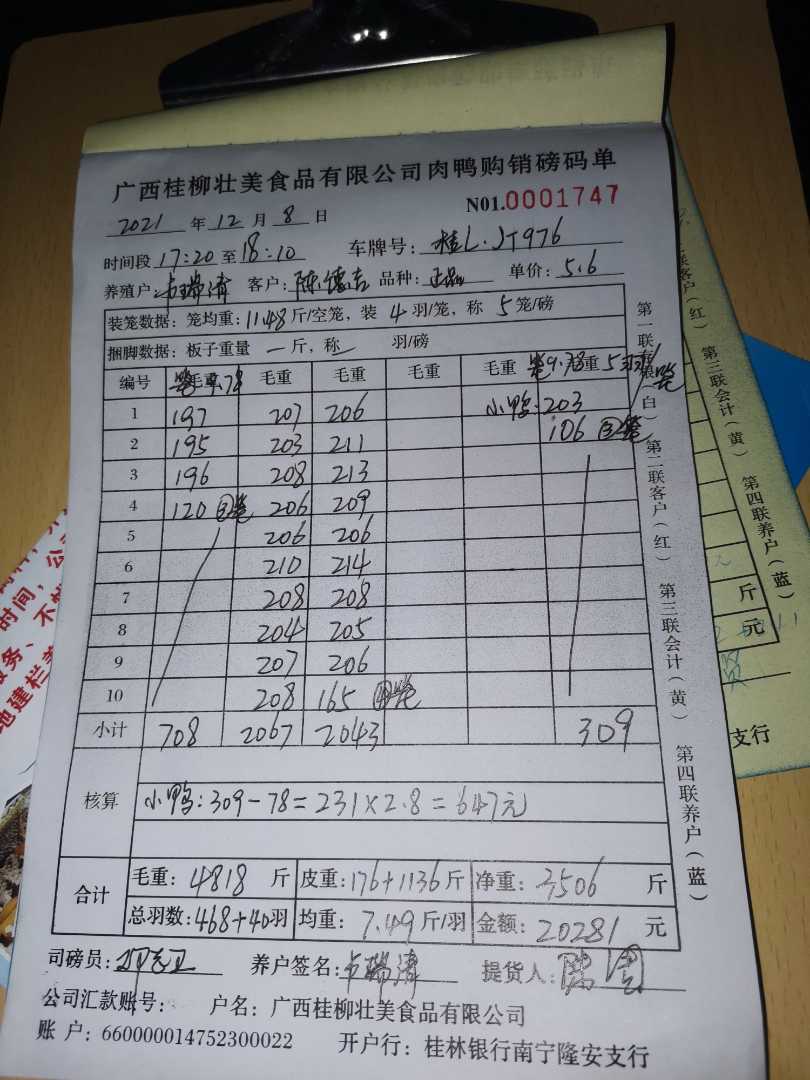 广西桂柳壮美食品有限公司肉鸭购销磅码单
2021 年 12 月 8 日 N01.0001747
时间段 17:20 至 18:10 车牌号: 桂L·JT976
养殖户: 卢瑞清 客户: 陈德吉 品种: 正品 单价: 5.6
装笼数据: 笼均重: 11.48 斤/空笼, 装 4 羽/笼, 称 5 笼/磅
捆脚数据: 板子重量 一 斤, 称 一 羽/磅
编号 毛重 笼9.78 毛重 毛重 毛重 毛重 笼9.78 毛重 5羽/笼
1 197 207 206 小鸭: 203
2 195 203 211 106 ③笼
3 196 208 213
4 120 ③笼 206 209
5 206 206
6 210 214
7 208 208
8 204 205
9 207 206
10 208 165 ④笼
小计 708 2067 2043 309
核算 小鸭: 309-78=231×2.8=647元
合计 毛重: 4818 斤 皮重: 176+1136 斤 净重: 3506 斤
总羽数: 468+40 羽 均重: 7.49 斤/羽 金额: 20281 元
司磅员: 养户签名: 卢瑞清 提货人:
公司汇款账号: 户名: 广西桂柳壮美食品有限公司
账 户: 660000014752300022 开户行: 桂林银行南宁隆安支行
第一联存根(白) 第二联客户(红) 第三联会计(黄) 第四联养户(蓝)
联客户(红) 第三联会计(黄) 第四联养户(蓝)
斤
元
支行
时间,
服务、不
地建栏